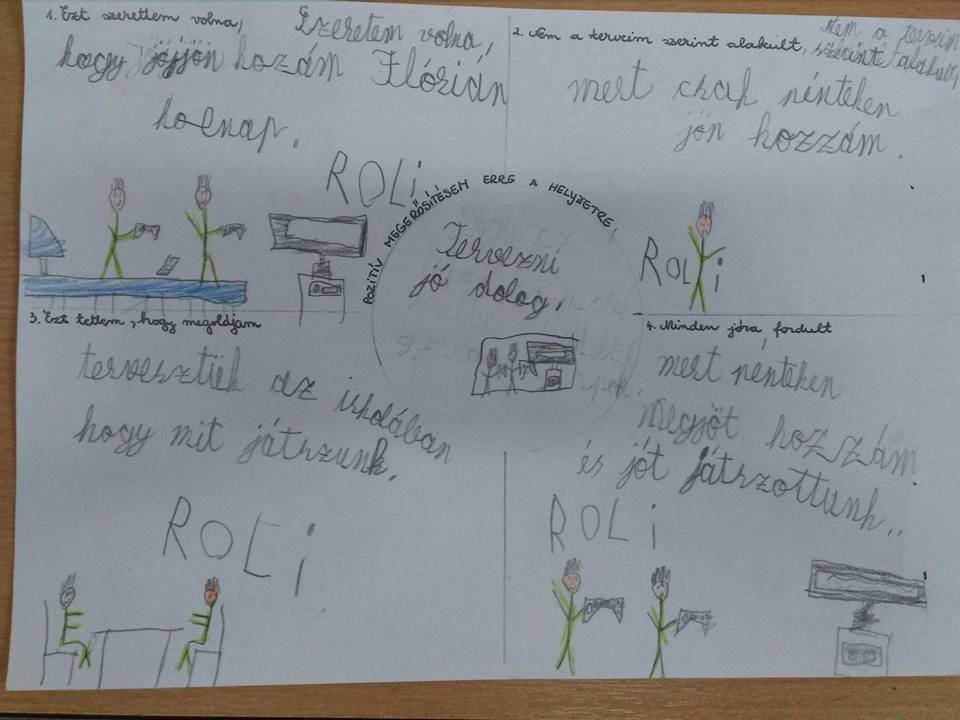 1. Ezt szerettem volna,
Szeretem volna,
hogy jöjjön hozám Flórián
holnap.
ROLi
2. Nem a terveim szerint alakult,
Nem a terveim
szerint alakult,
mert csak pénteken
jön hozzám.
ROLi
POZITÍV MEGERŐSÍTÉSEM ERRE A HELYZETRE
Tervezni
jó dolog.
3. Ezt tettem, hogy megoldjam
tervesztük az iskolában
hogy mit játszunk.
ROLi
4. Minden jóra fordult
mert pénteken
Megjöt hozszám
és jót játrzottunk..
ROLi